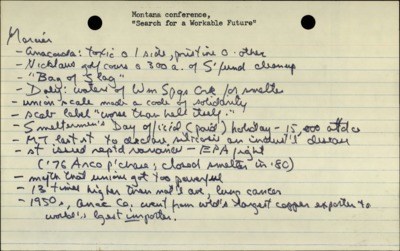 Montana conference,
"Search for a Workable Future"
Mercier
- Anaconda: toxic o 1 side, pristine o other
- Nicklaus golf course o 300 a. of S'fund cleanup
- "Bag of Slag"
- Daly: waters of Wm Spgs Crk for smelter
- union scale made a code of solidarity
- scab label "worse than hell itself."
- Smeltermen's Day official (paid) holiday - 15,000 attdce
- MT last st to declare silicosis an indus'l disease
- st issued rep'td variance - EPA fight
('76 Arco p'chase; closed smelter in '80)
- myth that unions got too powerful
- 13 times higher than nat'l ave, lung cancer
- 1950s, Anac Co. went from world's largest copper exporter to
world's lgest importer.